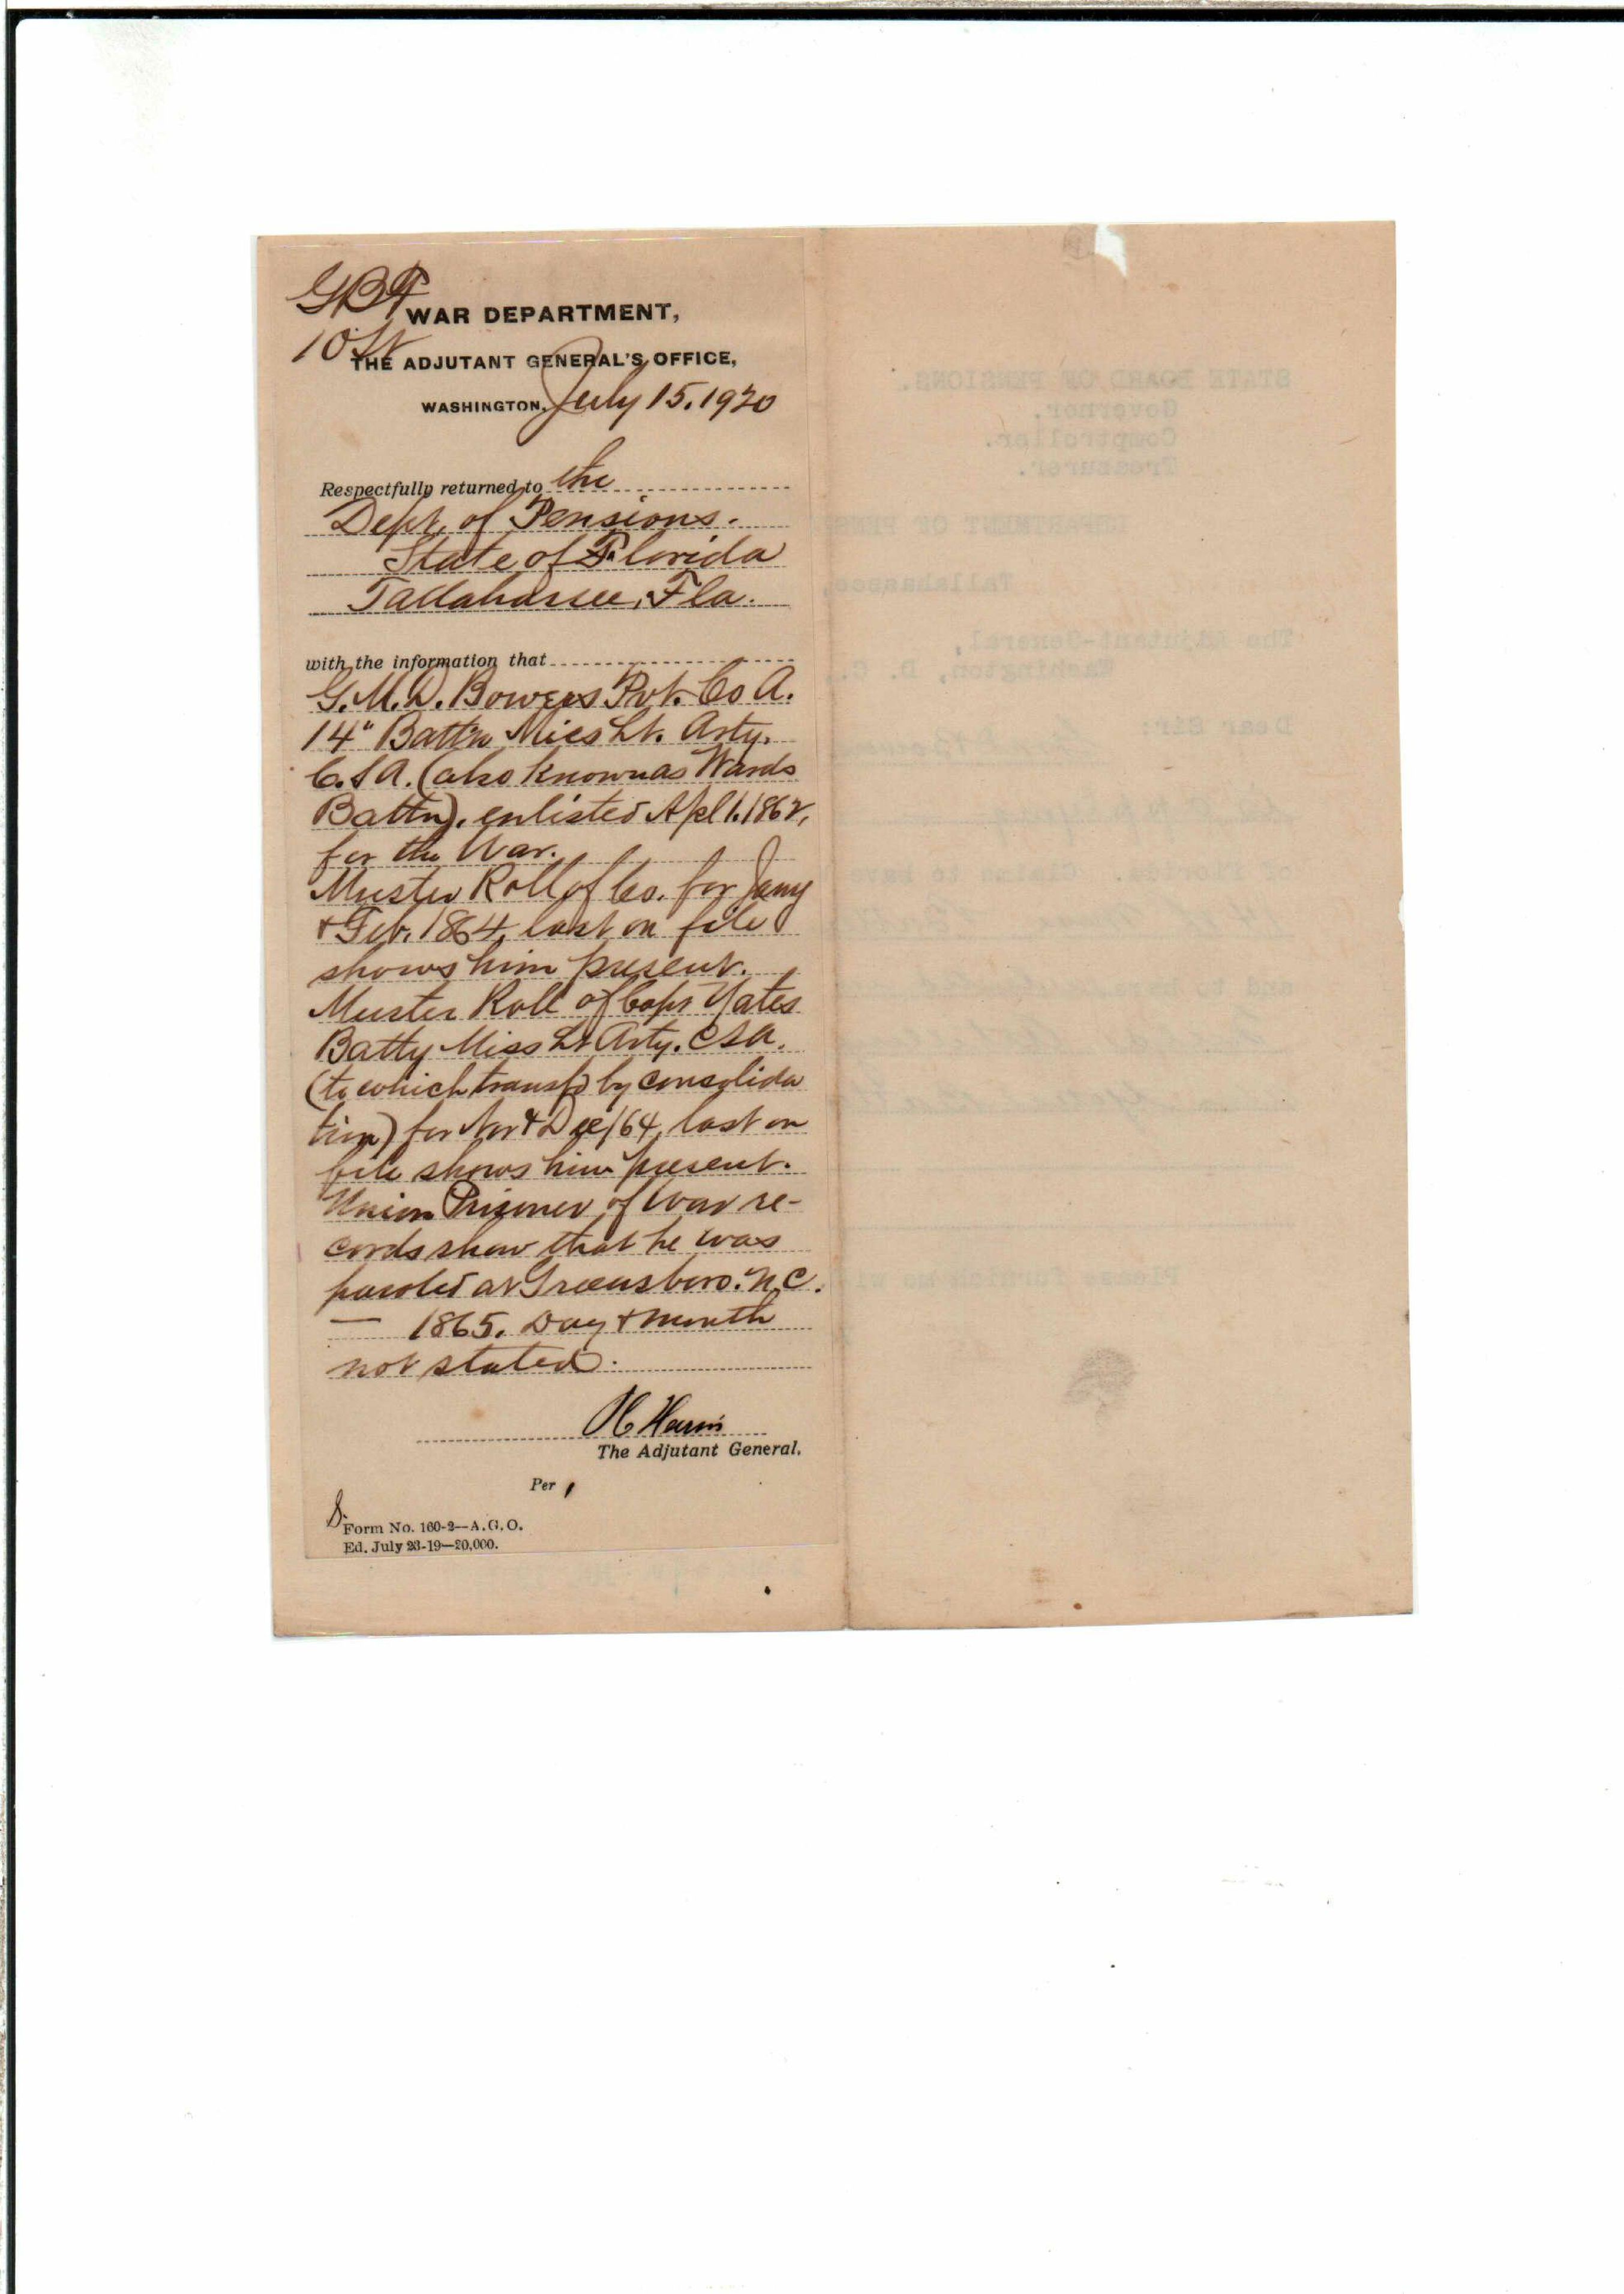 GBF
WAR DEPARTMENT,
10 St
THE ADJUTANT GENERAL'S OFFICE,
WASHINGTON, July 15. 1920
Respectfully returned to the
Dept. of Pensions.
State of Florida
Tallahassee, Fla.
with the information that
G. M. D. Bowers Pvt. Co A.
14" Battn Miss Lt. Arty.
C.S.A. (also known as Wards
Battn). enlisted Apl 1. 1862,
for the War.
Muster Roll of Co. for Jany
& Feb. 1864, last on file
shows him present.
Muster Roll of Capt Yates
Batty Miss Lt Arty. CSA.
(to which transfd by consolida
tion) for Nov & Dec/64, last on
file shows him present.
Union Prisoner of War re-
cords show that he was
paroled at Greensboro. N.C.
— 1865. Day & month
not stated.
Harris
The Adjutant General.
Per
Form No. 160-2—A.G.O.
Ed. July 23-19—20,000.
STATE BOARD OF PENSIONS.
Governor.
Comptroller.
Treasurer.
DEPARTMENT OF PENS
Tallahassee,
The Adjutant-General,
Washington, D. C.,
Dear Sir:
of Florida. Claims to have
and to have
Please furnish me wi